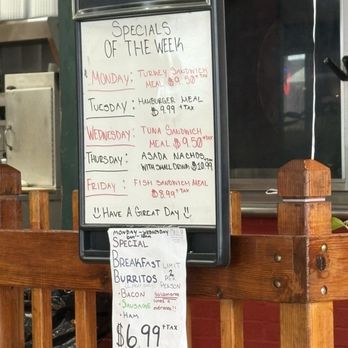 SPECIALS
OF THE WEEK
MONDAY: TURKEY SANDWICH
MEAL $9.50 +TAX
TUESDAY: HAMBURGER MEAL
$9.99 +TAX
WEDNESDAY: TUNA SANDWICH
MEAL $9.50 +TAX
THURSDAY: ASADA NACHOS
WITH SMALL DRINK $10.99
FRIDAY: FISH SANDWICH MEAL
$8.99 +TAX
HAVE A GREAT DAY
MONDAY-WEDNESDAY
SPECIAL
BREAKFAST LIMIT
BURRITOS 2 PER
PERSON
•BACON
•SAUSAGE
•HAM
$6.99 +TAX